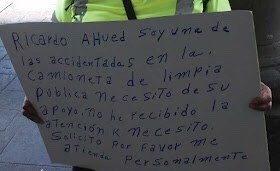 Ricardo Ahued Soy une de
las accidentadas en la.
Camioneta de limpia
Publica necesito de su
apoyo. no he recibido la
atención k necesito.
Solicito por favor me
atienda personalmente